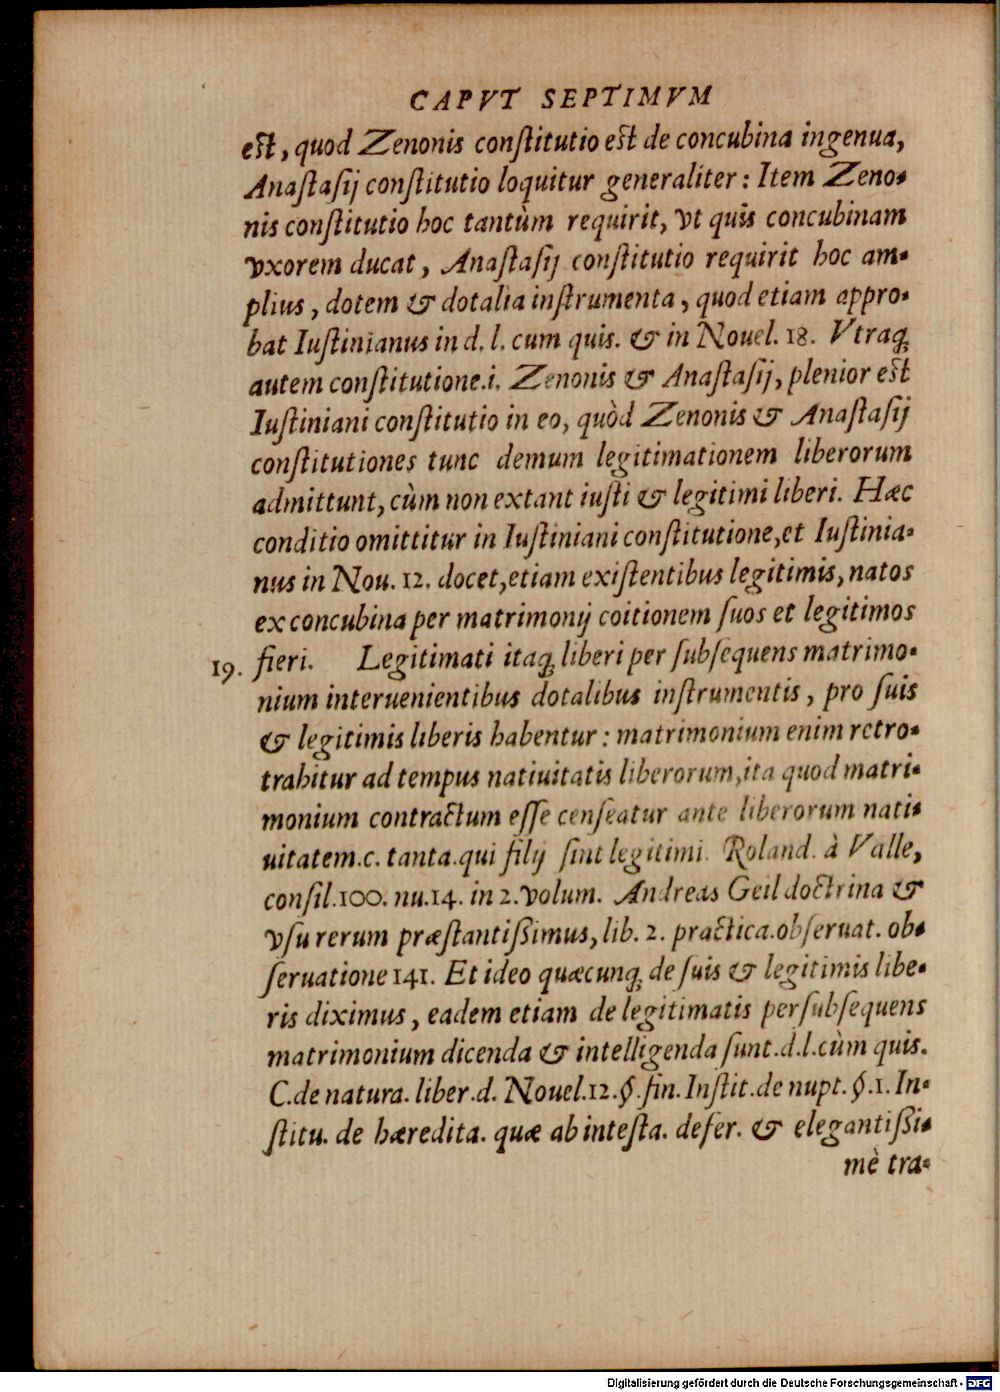 CAPVT SEPTIMVM
est, quod Zenonis constitutio est de concubina ingenua,
Anastasij constitutio loquitur generaliter: Item Zeno-
nis constitutio hoc tantùm requirit, vt quis concubinam
vxorem ducat, Anastasij constitutio requirit hoc am-
plius, dotem & dotalia instrumenta, quod etiam appro-
bat Iustinianus in d. l. cum quis. & in Nouel. 18. Vtraq;
autem constitutione.i. Zenonis & Anastasij, plenior est
Iustiniani constitutio in eo, quòd Zenonis & Anastasij
constitutiones tunc demum legitimationem liberorum
admittunt, cùm non extant iusti & legitimi liberi. Hæc
conditio omittitur in Iustiniani constitutione, et Iustinia-
nus in Nou. 12. docet, etiam existentibus legitimis, natos
ex concubina per matrimonij coitionem suos et legitimos
19. fieri. Legitimati itaq; liberi per subsequens matrimo-
nium interuenientibus dotalibus instrumentis, pro suis
& legitimis liberis habentur: matrimonium enim retro-
trahitur ad tempus natiuitatis liberorum, ita quod matri-
monium contractum esse censeatur ante liberorum nati-
uitatem.c. tanta.qui filij sint legitimi. Roland. à Valle,
consil.100. nu.14. in 2.volum. Andreas Geil doctrina &
vsu rerum præstantißimus, lib. 2. practica.obseruat. ob-
seruatione 141. Et ideo quæcunq; de suis & legitimis libe-
ris diximus, eadem etiam de legitimatis per subsequens
matrimonium dicenda & intelligenda sunt.d.l.cùm quis.
C.de natura. liber.d. Nouel.12.§.fin.Instit.de nupt.§.1.In-
stitu. de hæredita. quæ ab intesta. defer. & elegantißi-
mè tra-
Digitalisierung gefördert durch die Deutsche Forschungsgemeinschaft - DFG